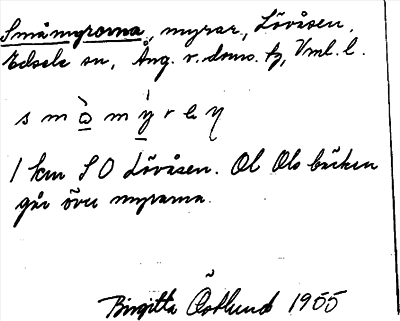 Småmyrorna, myrar, Lövåsen,
Edsele sn, Ång. v. doms. tg, Vml. l.
s m å m y r e
1 km S O Lövåsen. Ol Ols bäcken
går över myrarna.
Birgitta Östlund 1955